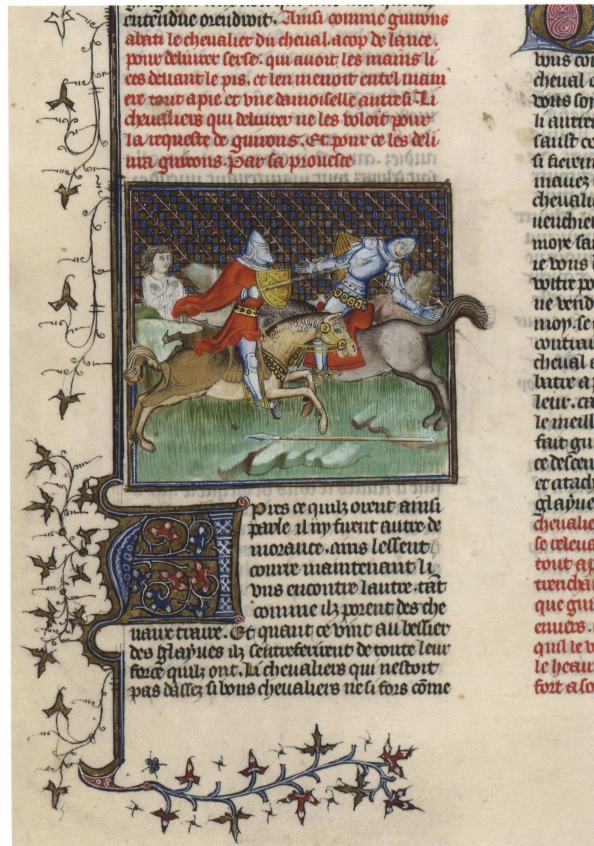 entendue orendroit. Ainsi comme guirons
abati le chevalier du cheval. a cop de lance.
pour delivrer serse. qui avoit les mains li
ees devant le pis. et len menoit en tel mani
ere tout a pie et une damoiselle autresi. Li
chevaliers qui delivrer ne les voloit pour
la requeste de guirons. Et pour ce les deli
vra guirons. Par sa prouesce
Apres ce quilz orent ainsi
parle il ny firent autre de
morance. ains lessent
courre maintenant li
uns encontre lautre. tāt
comme ilz porent des che
vaux traire. Et quant ce vint au bessier
des glayves ilz sentreferirent de toute leur
force quilz ont. Li chevaliers qui nestoit
pas dassez si bons chevaliers ne si fors cōme
vous
cheval
vous
li autre
mauvez
chevalie
ie vous
ne vend
moy. se
cheval a
batre a
leur. ca
le meill
fait gui
ce descen
et atach
glayves
chevalie
se releva
tout a p
trencha
que gui
envers.
quil le v
le heau
fort a so